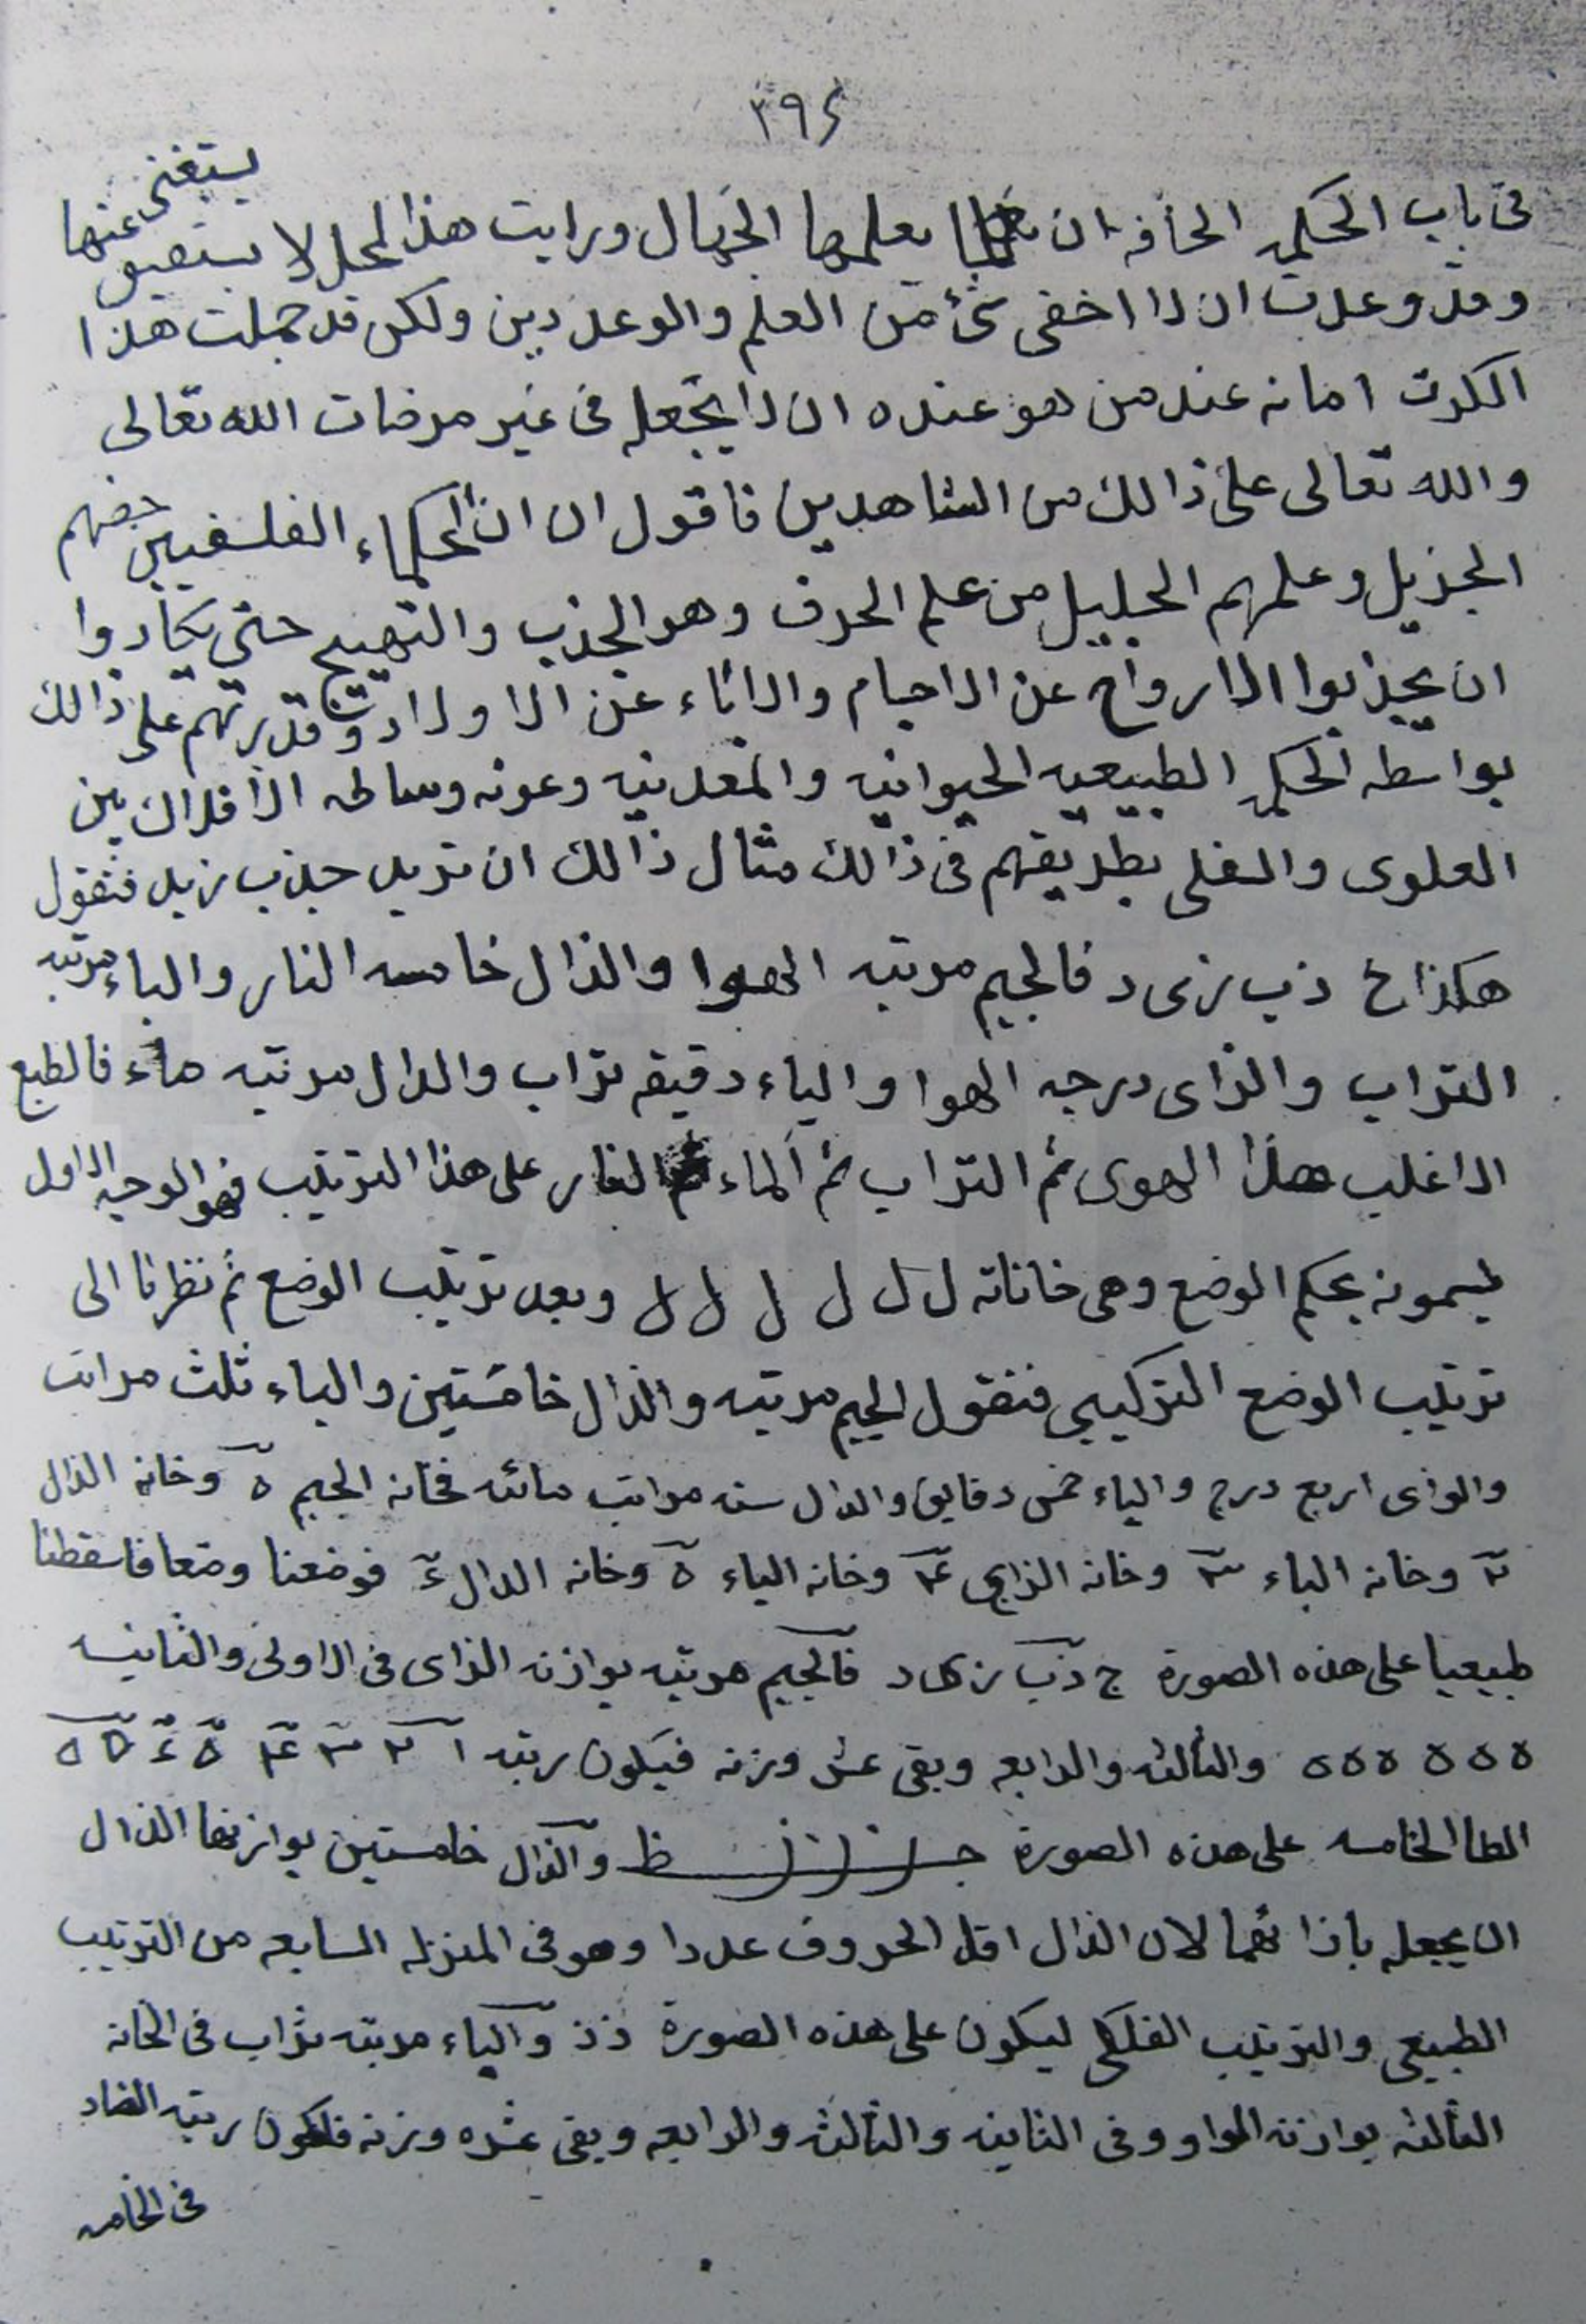 ٣٩٤
في باب الحكمه المخافه ان يعلمها الجهال ورايت هذا لمحل لا يستغنى عنها
وقد وعدت ان لا اخفى شئ من العلم والوعد دين ولكن قد جملت هذا
الكرت امانه عند من هو عنده ان لا يجعله فى غير مرضات الله تعالى
والله تعالى على ذالك من الشاهدين فاقول ان ان الحكماء الفلسفيين حضهم
الجزيل وعلمهم الجليل من علم الحرف وهو الجذب والتهييج حتى يكادوا
ان يجذبوا الارواح عن الاجسام والاباء عن الاولاد وقدرتهم على ذالك
بواسطه الحكمه الطبيعيه الحيوانيه والمعدنيه وعونه وساطه الافلاك بين
العلوى والسفلى بطريقهم فى ذالك مثال ذالك ان تريد جذب زيد فتقول
هكذا ج ذ ب ز ى د فالجيم مرتبه الهوا والذال خامسه النار والباء مرتبه
التراب والزاى درجه الهوا والياء دقيقه تراب والدال مرتبه ماء فالطبع
الاغلب هذا الهوى ثم التراب ثم الماء ثم النار على هذا الترتيب فهو الوجه الاول
ليسمونه بحكم الوضع وهى خاناته ل ل ل ل ل ل ل وبعد ترتيب الوضع ثم نظرنا الى
ترتيب الوضع التركيبى فنقول الجيم مرتبه والذال خامستين والباء ثلث مراتب
والزاى اربع درج والياء خمس دقايق والدال سته مراتب مائه فخانه الجيم ه وخانه الذال
٢ وخانه الباء ٣ وخانه الزاى ٤ وخانه الياء ه وخانه الدال ٤ فوضعنا وضعا فاسقطنا
طبيعيا على هذه الصورة ج ذ ب ز ى د فالجيم مرتبه يوازنه الزاى فى الاولى والثانيه
ه ه ه ه ه ه والثالثه والرابعه وبقى عشر وزنه فيكون رتبه
الطا الخامسه على هذه الصورة ظ والذال خامستين يوازنها الذال
ان يجعله باذائهما لان الذال اقل الحروف عددا وهو فى المنزله السابعه من الترتيب
الطبيعى والترتيب الفلكى ليكون على هذه الصورة ذذ والياء مرتبه تراب فى الخانه
الثالثه يوازنه الواو وفى الثانيه والثالثه والرابعه وبقى عشره وزنه فلكون رتبه الضاد
فى الخامسه